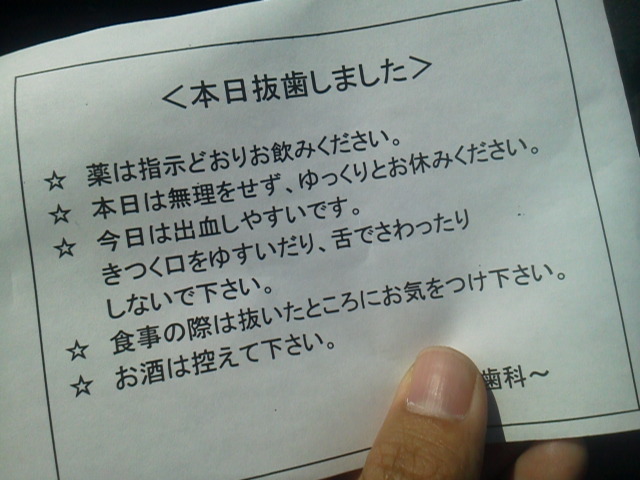 ＜本日抜歯しました＞
☆ 薬は指示どおりお飲みください。
☆ 本日は無理をせず、ゆっくりとお休みください。
☆ 今日は出血しやすいです。
きつく口をゆすいだり、舌でさわったり
しないで下さい。
☆ 食事の際は抜いたところにお気をつけ下さい。
☆ お酒は控えて下さい。
歯科～